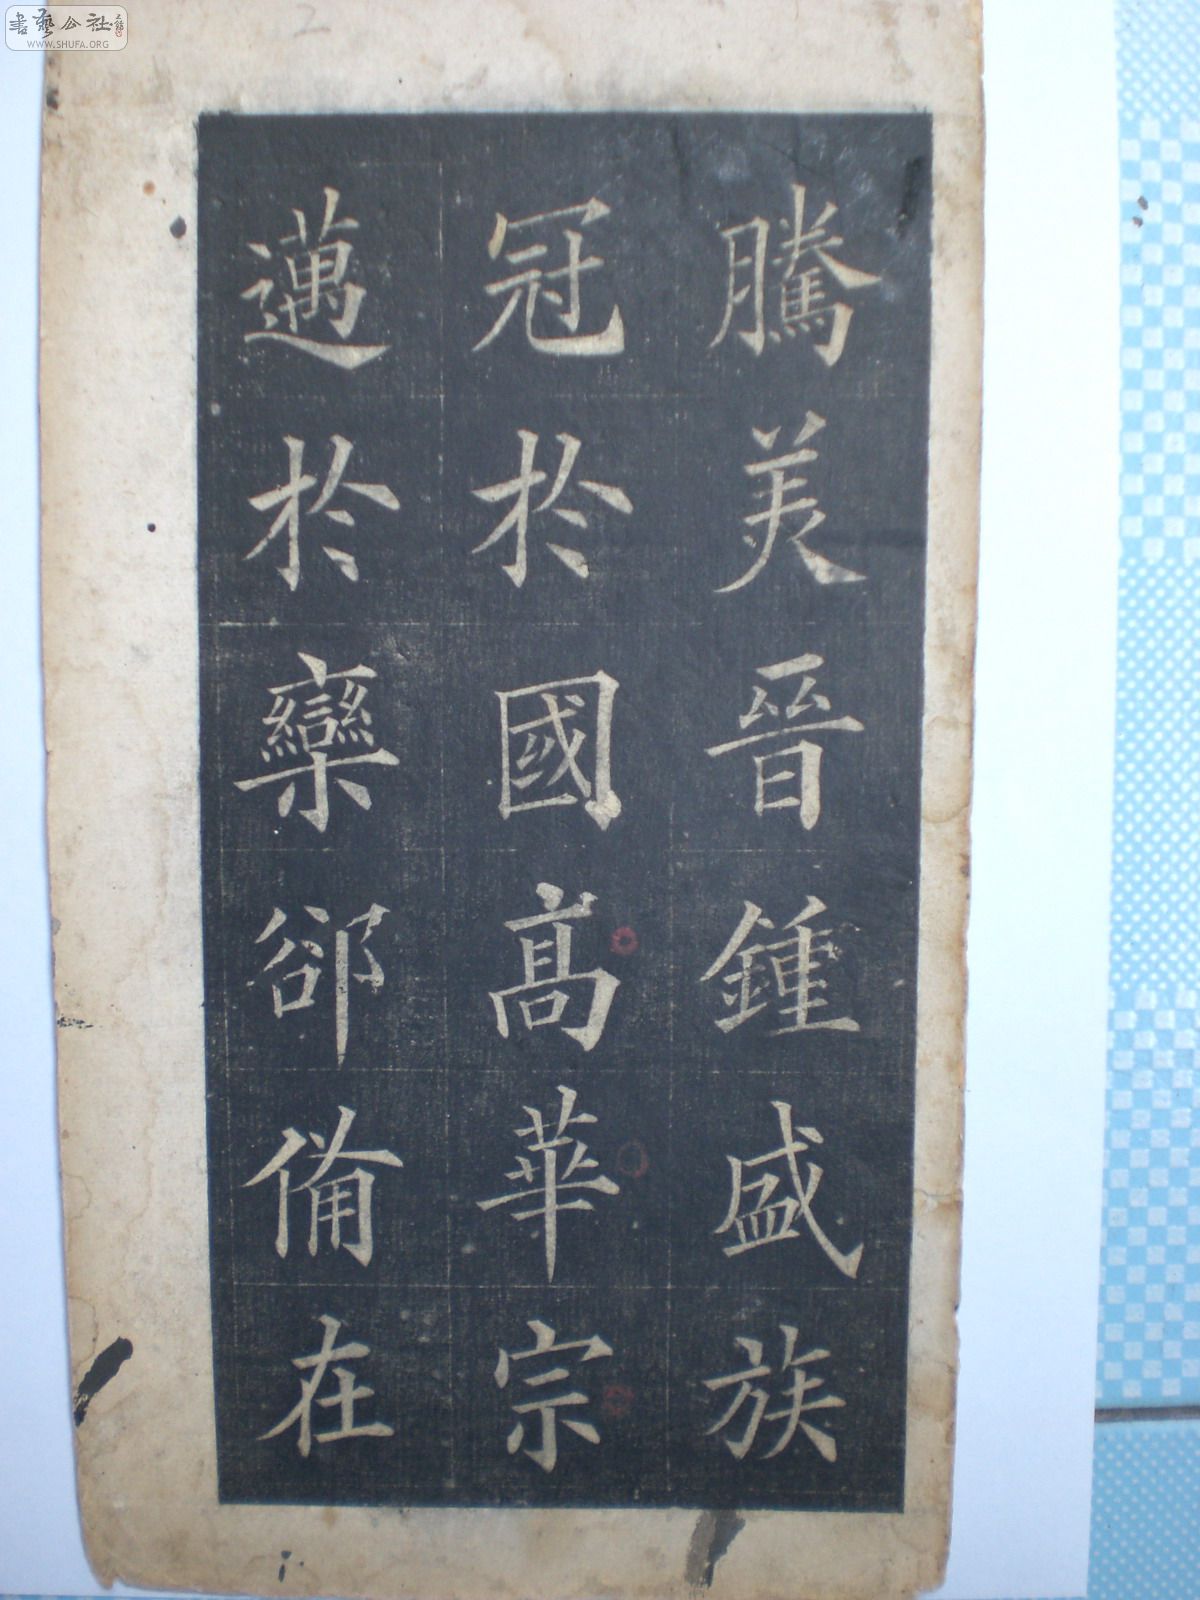 騰美晉鍾盛族
冠於國高華宗
邁於欒郤備在
書藝公社
WWW.SHUFA.ORG